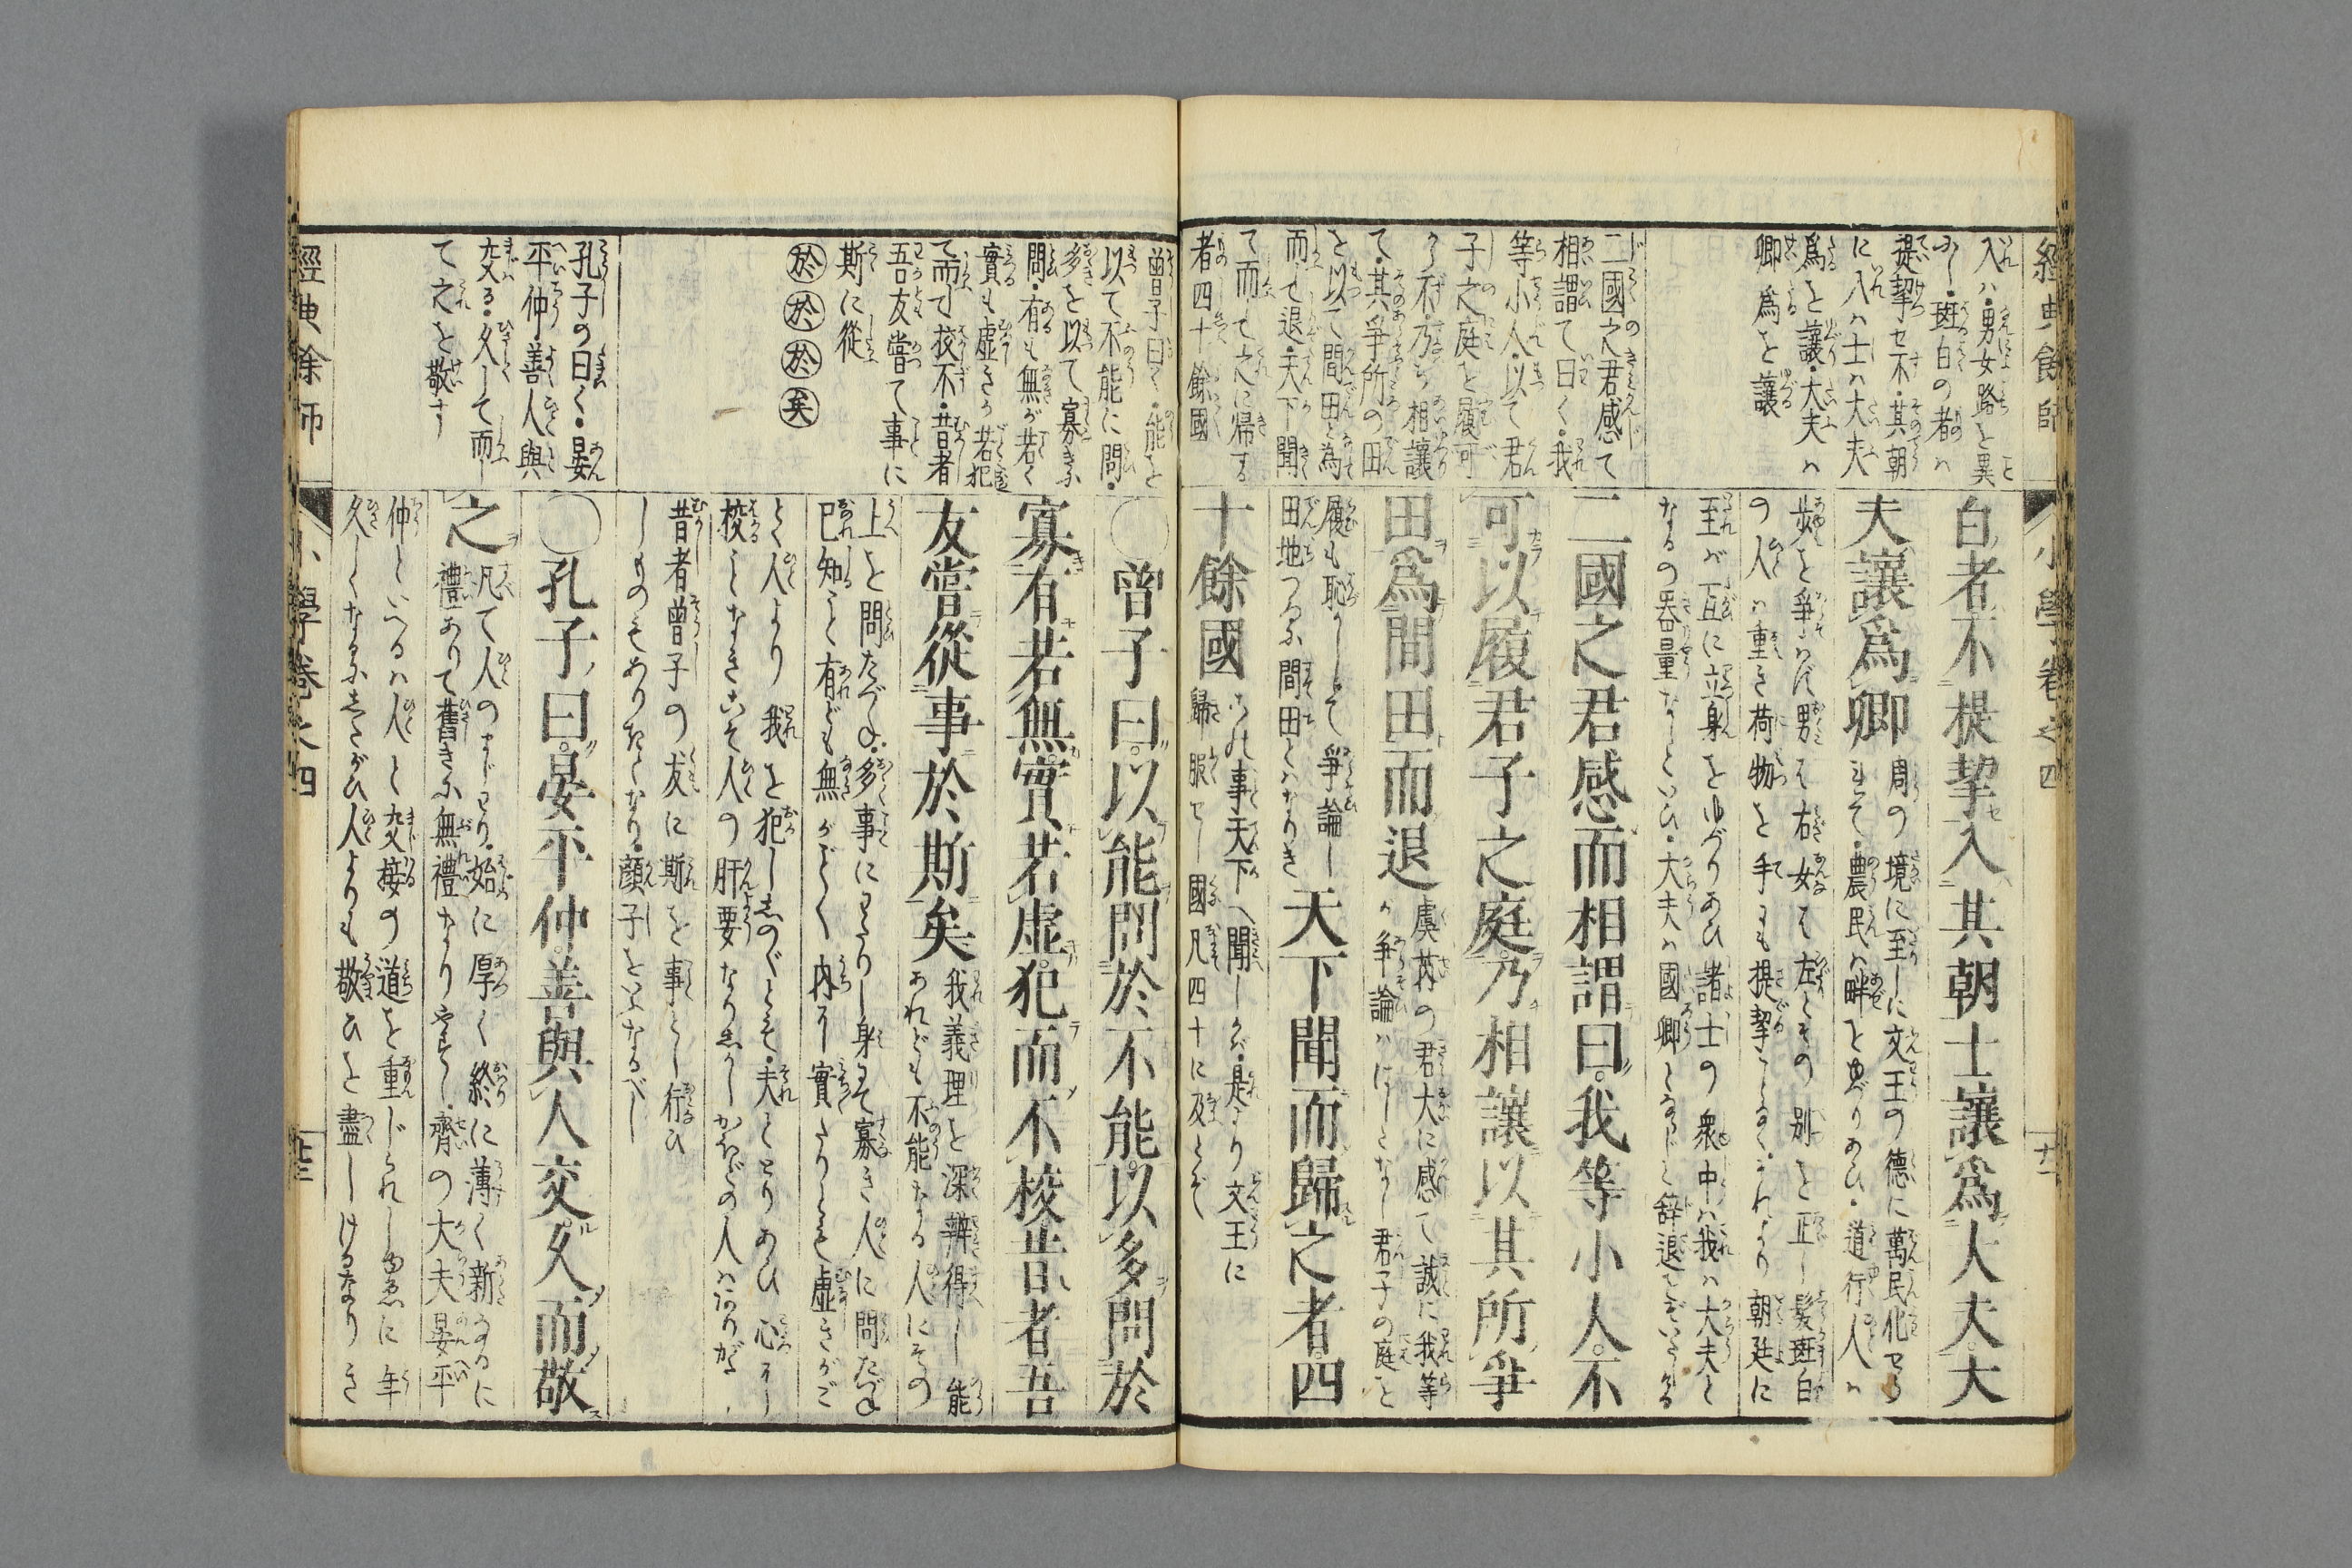 經典餘師
小學卷之四
入ハ男女路を異
にし斑白の者ハ
提挈セ不其朝
に入ハ士ハ大夫
爲を讓大夫ハ
卿爲を讓
白者不提挈入其朝士讓爲大夫大
夫讓爲卿
周の境に至しに文王の德に萬民化せら
れて農民ハ畔をゆづりあひ道行人ハ
歩を爭ハず男は右女は左とその別を正し髪斑白
の人ハ重き荷物を手にも提挈ことなくそれより朝廷に
至れバ互に立身をゆづりあひ諸士の衆中ハ我ハ大夫と
なるの器量なしといひ大夫ハ國卿となるまじと辞退
二國之君感て
相謂て曰く我
等小人以て君
子之庭を履可
から不乃ち相讓
て其爭所の田
を以て間田と為
而して退天下聞
て而して之に帰する
者四十餘國
二國之君感而相謂曰我等小人不
可以履君子之庭乃相讓以其所爭
田爲間田而退
虞芮の君大に感て誠に我等
が爭論ハけしとなし君子の庭を
履も恥かしとて爭論し
田地つゐに間田とハなりき
天下聞而歸之者四
十餘國
この事天下へ聞しかバ是より文王に
歸服せし國凡四十に及とぞ
曽子曰く能を
以て不能に問
多を以て寡きに
問有も無が若く
實も虚きが若犯
て而して校不昔者
吾友嘗て事に
斯に從
於於於矣
○曽子曰以能問於不能以多問於
寡有若無實若虚犯而不校昔者吾
友嘗從事於斯矣
我義理を深辨得し能
あれども不能なる人にその
上を問たづね多事にわたりし身にて寡き人に問たづね
已知こと有ども無がごとく内に實たりとも虚きがご
とく人より我を犯ししのぐとも夫ととりあひ心にし
校ことなきこそ人の肝要なりしかしかほどの人ハありがたし
昔者曽子の友に斯を事とし行ひ
しものもありたくなり顔子をいふなるべし
孔子の曰く晏
平仲善人與
交る久して而し
て之を敬す
○孔子曰晏平仲善與人交久而敬
之
凡て人のまじわり始に厚く終に薄く新なるに
禮ありて舊きに無禮なりやすし齊の大夫晏平
仲といへるハ人と交接の道を重じられしゆゑに年
久しくなるにしたがひ人よりも敬ひを盡しけるなりき
經典余師
小學卷之四